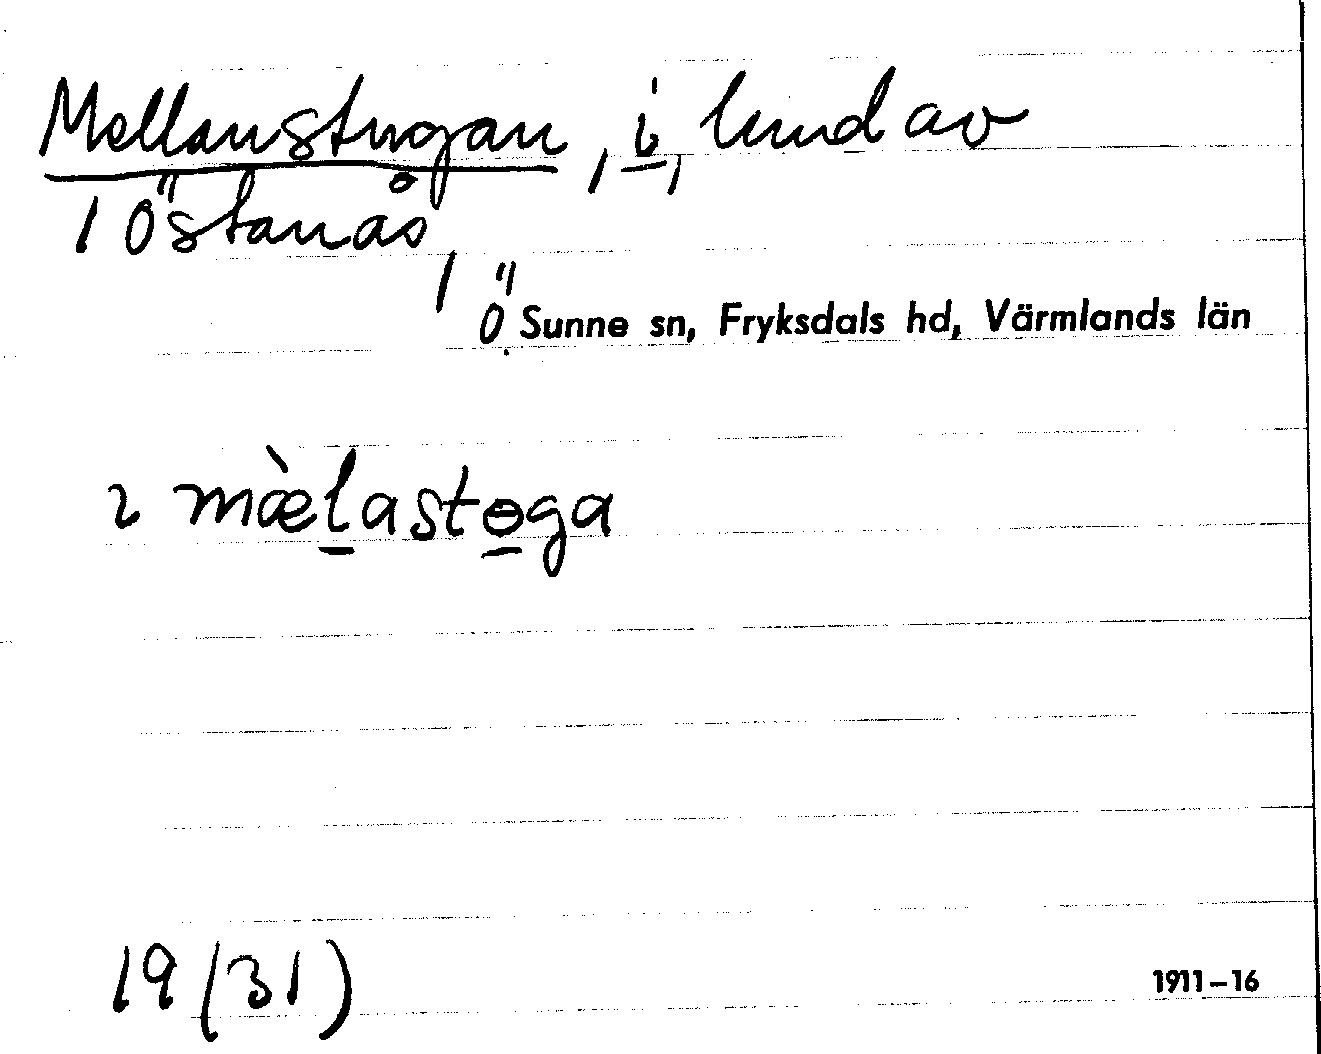 Mellanstugan, i, lund av
1 Östanås,
1 Ö. Sunne sn, Fryksdals hd, Värmlands län
ɩ mæ̀lastɵga
19 (31)
1911–16